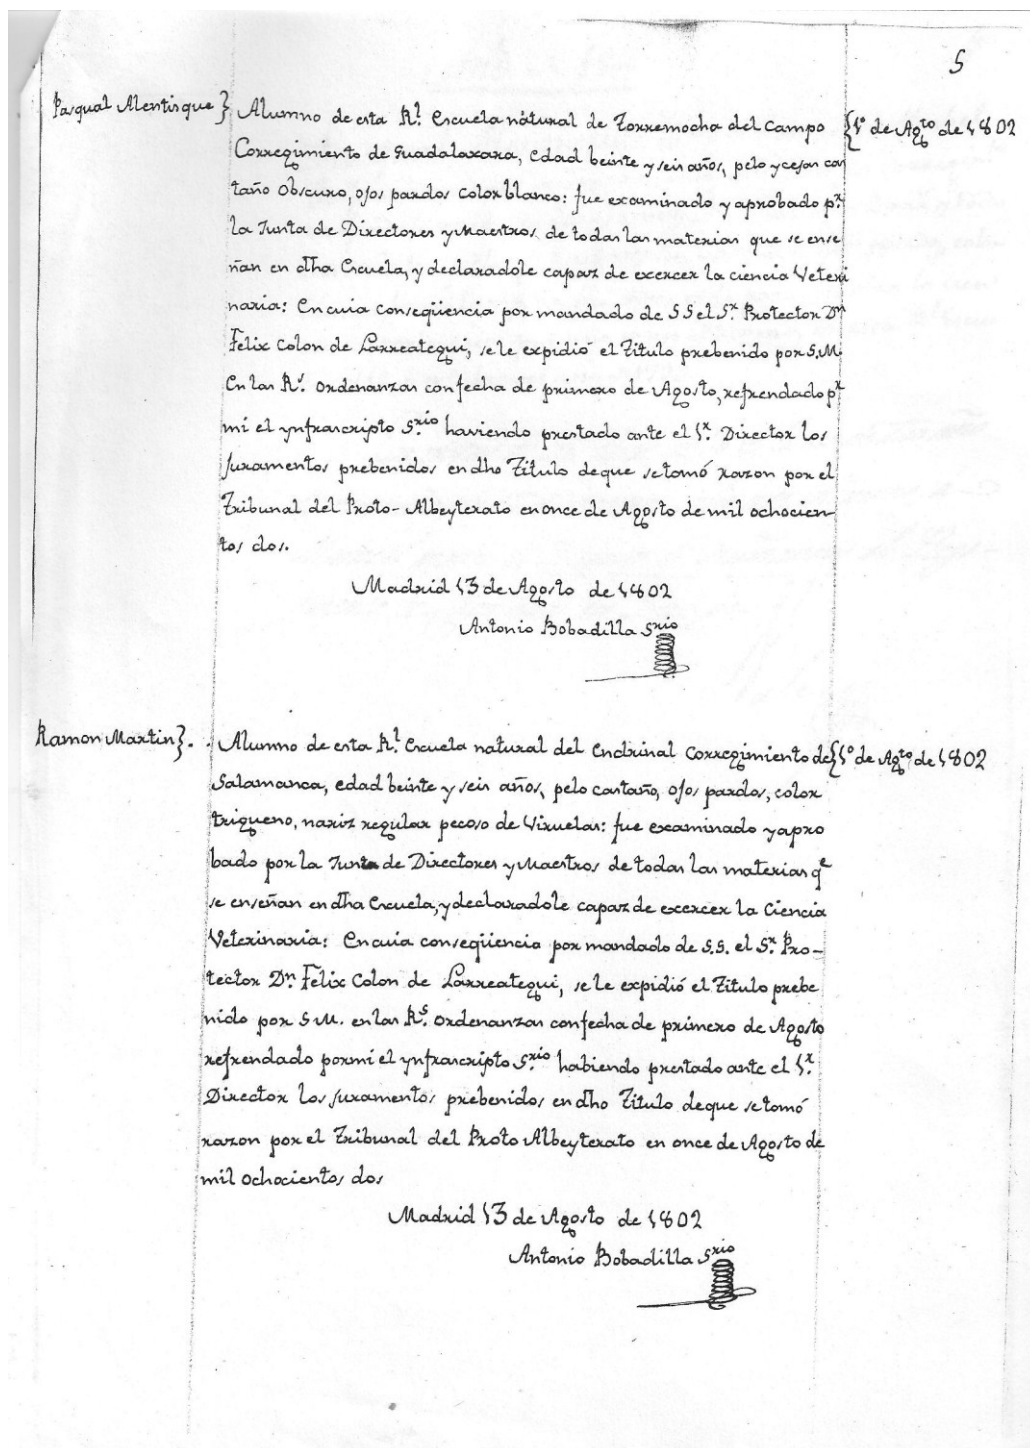 5
Pasqual Mentisque} Alumno de esta Rl. Escuela natural de Torremocha del Campo {1º de Agto de 1802
Corregimiento de Guadalaxara, edad beinte y seis años, pelo y cejas cas
taño obscuro, ojos pardos color blanco: fue examinado y aprobado pr.
la Junta de Directores y Maestros de todas las materias que se ense
ñan en dha Escuela, y declaradole capaz de exercer la ciencia Veteri
naria: En cuia conseqüencia por mandado de SS el Sr. Protector Dn
Felix Colon de Larreategui, se le expidió el Titulo prebenido por S.M.
En las Rs. ordenanzas con fecha de primero de Agosto, refrendado pr
mi el ynfrascripto Srio haviendo prestado ante el Sr. Director los
juramentos prebenidos en dho Titulo de que se tomó razon por el
Tribunal del Proto-Albeyterato en once de Agosto de mil ochocien-
tos dos.
Madrid 13 de Agosto de 1802
Antonio Bobadilla Srio
Ramon Martin}. . Alumno de esta Rl. Escuela natural del Endrinal Corregimiento de {1º de Agto de 1802
Salamanca, edad beinte y seis años, pelo castaño, ojos pardos, color
trigueno, nariz regular pecoso de Viruelas: fue examinado y apro
bado por la Junta de Directores y Maestros de todas las materias qe
se enseñan en dha Escuela, y declaradole capaz de exercer la Ciencia
Veterinaria: En cuia conseqüencia por mandado de S.S. el Sr. Pro-
tector Dn. Felix Colon de Larreategui, se le expidió el Titulo prebe
nido por S M. en las Rs. ordenanzas con fecha de primero de Agosto
refrendado por mi el ynfrascripto Srio habiendo prestado ante el Sr.
Director los juramentos prebenidos en dho Titulo de que se tomó
razon por el Tribunal del Proto Albeyterato en once de Agosto de
mil ochocientos dos
Madrid 13 de Agosto de 1802
Antonio Bobadilla Srio